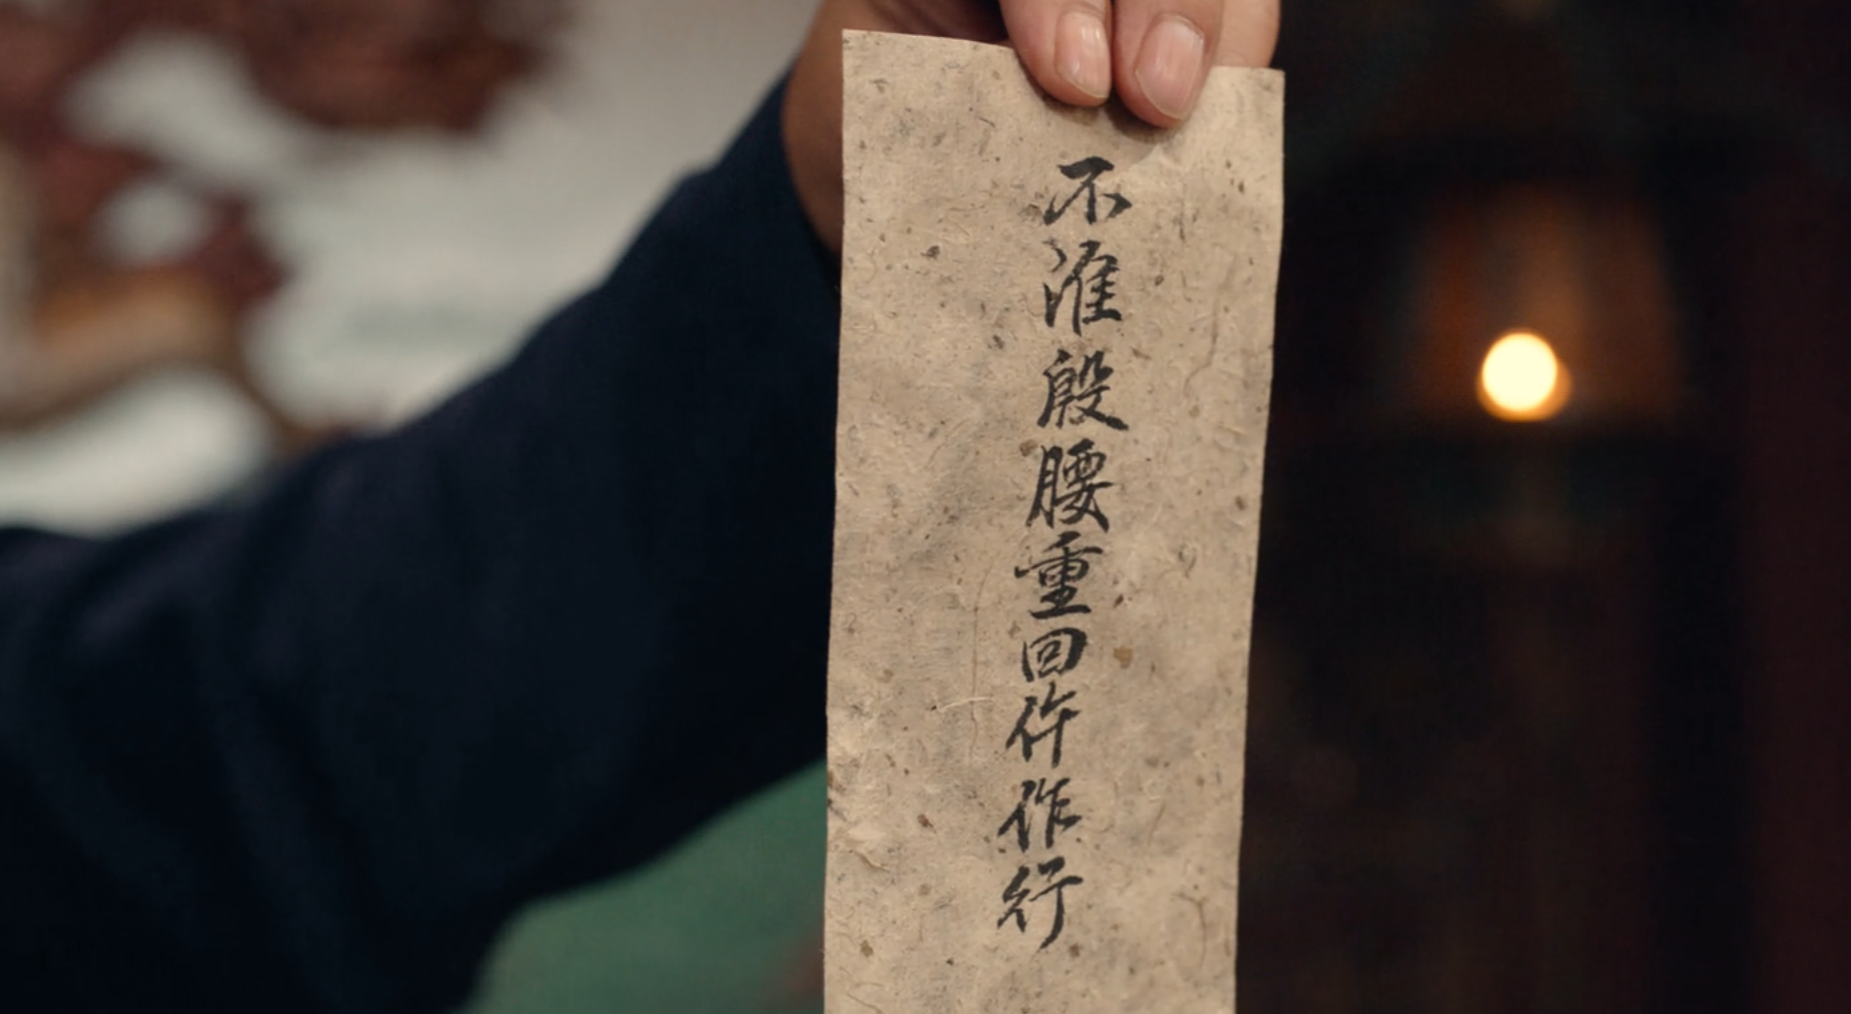 不准殷腰重回仵作行